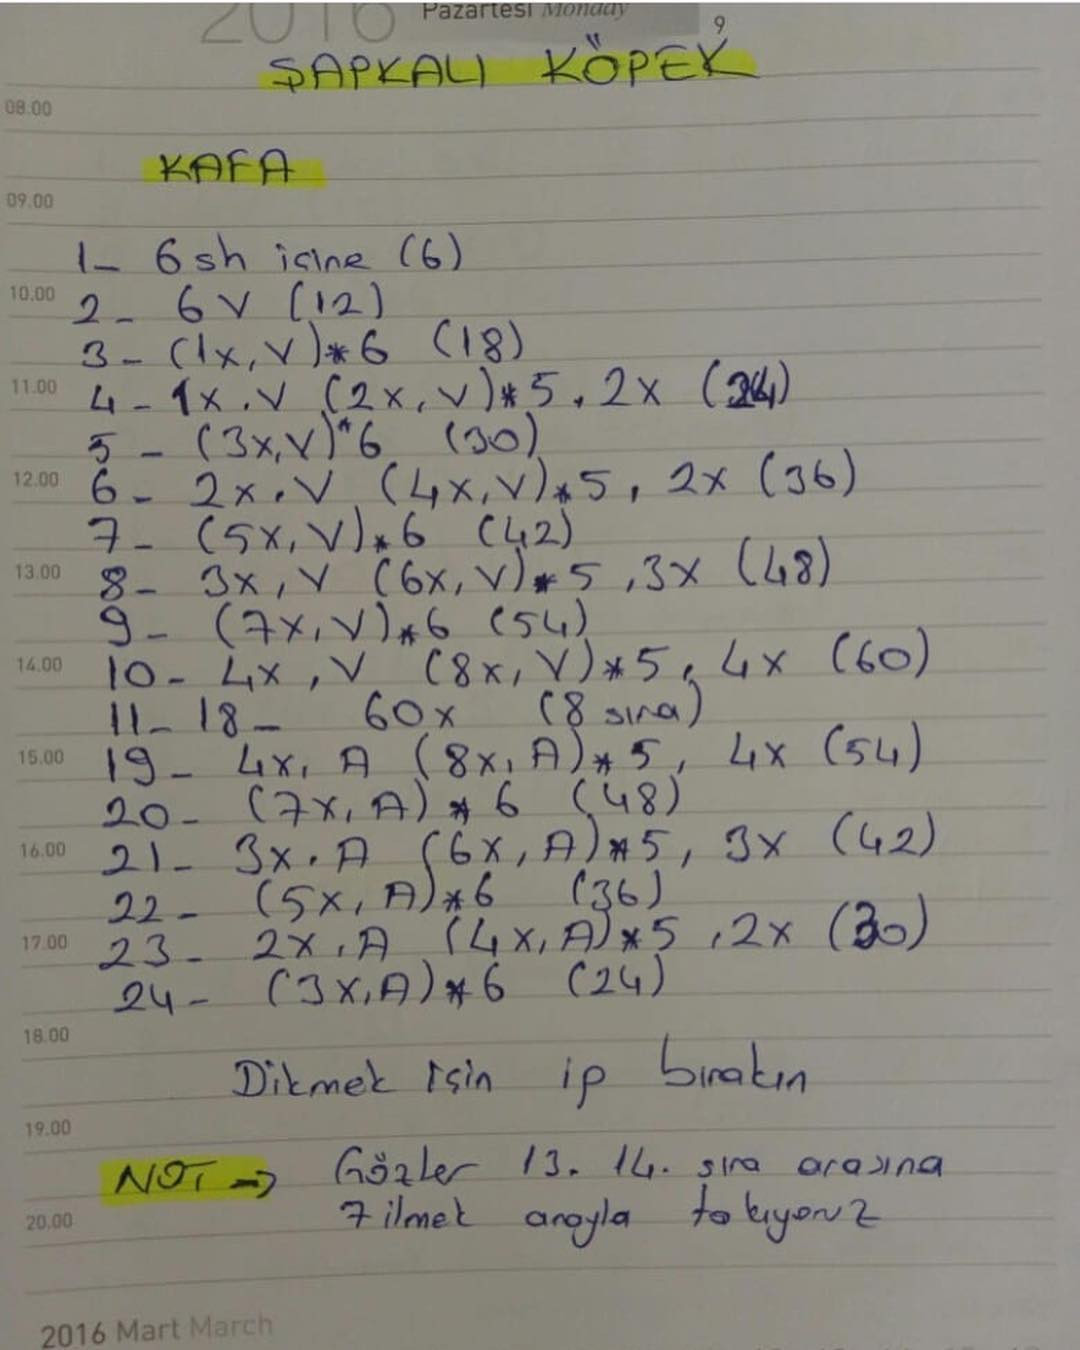 2016 Pazartesi Monday
9
ŞAPKALI KÖPEK
08.00
KAFA
09.00
1- 6 sh içine (6)
10.00
2- 6 V (12)
3- (1x, V)*6 (18)
11.00
4- 1x, V (2x, V)*5, 2x (24)
5- (3x, V)*6 (30)
12.00
6- 2x, V (4x, V)*5, 2x (36)
7- (5x, V)*6 (42)
13.00
8- 3x, V (6x, V)*5, 3x (48)
9- (7x, V)*6 (54)
14.00
10- 4x, V (8x, V)*5, 4x (60)
11-18- 60x (8 sıra)
15.00
19- 4x, A (8x, A)*5, 4x (54)
20- (7x, A)*6 (48)
16.00
21- 3x, A (6x, A)*5, 3x (42)
22- (5x, A)*6 (36)
17.00
23- 2x, A (4x, A)*5, 2x (30)
24- (3x, A)*6 (24)
18.00
Dikmek için ip bırakın
19.00
NOT → Gözler 13. 14. sıra arasına
20.00
7 ilmek arayla takıyoruz
2016 Mart March